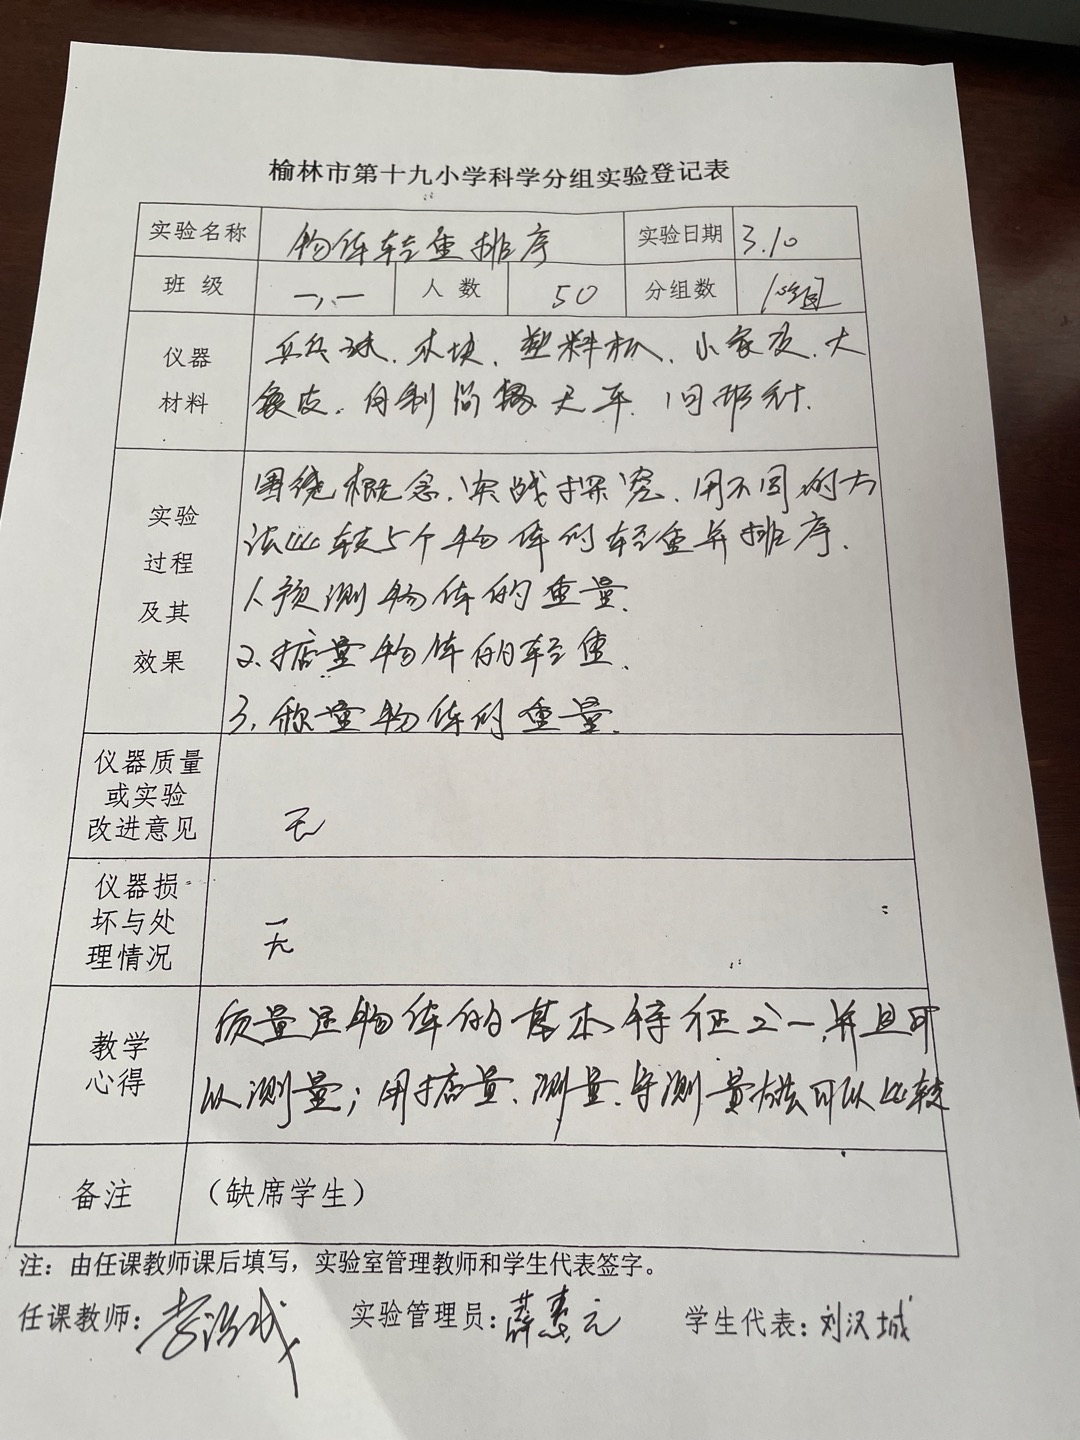 榆林市第十九小学科学分组实验登记表
实验名称 物体轻重排序 实验日期 3.10
班级 一、一 人数 50 分组数
仪器材料 乒乓球、木块、塑料松、小象皮、大
象皮、自制简 天平、回形针.
实验过程及其效果 围绕概念、实践探究、用不同的方
法比较5个物体的轻重并排序.
1、预测物体的重量.
2、掂量物体的轻重.
3、称量物体的重量.
仪器质量或实验改进意见 无
仪器损坏与处理情况 无
教学心得 质量是物体的基本特征之一,并且可
以测量;用掂量、测量、等测量方法可以比较
备注 (缺席学生)
注:由任课教师课后填写,实验室管理教师和学生代表签字。
任课教师: 实验管理员: 学生代表:刘汉城